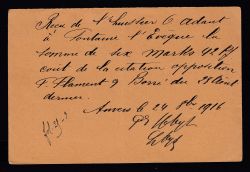 Reçu de Mr l'huissier C Adant
à Fontaine l'Evêque la
somme de six Marks 42 Pf
cout de la citation opposition
F. Flament & Borré du 28 Août
dernier.
Anvers le 24 8bre 1916